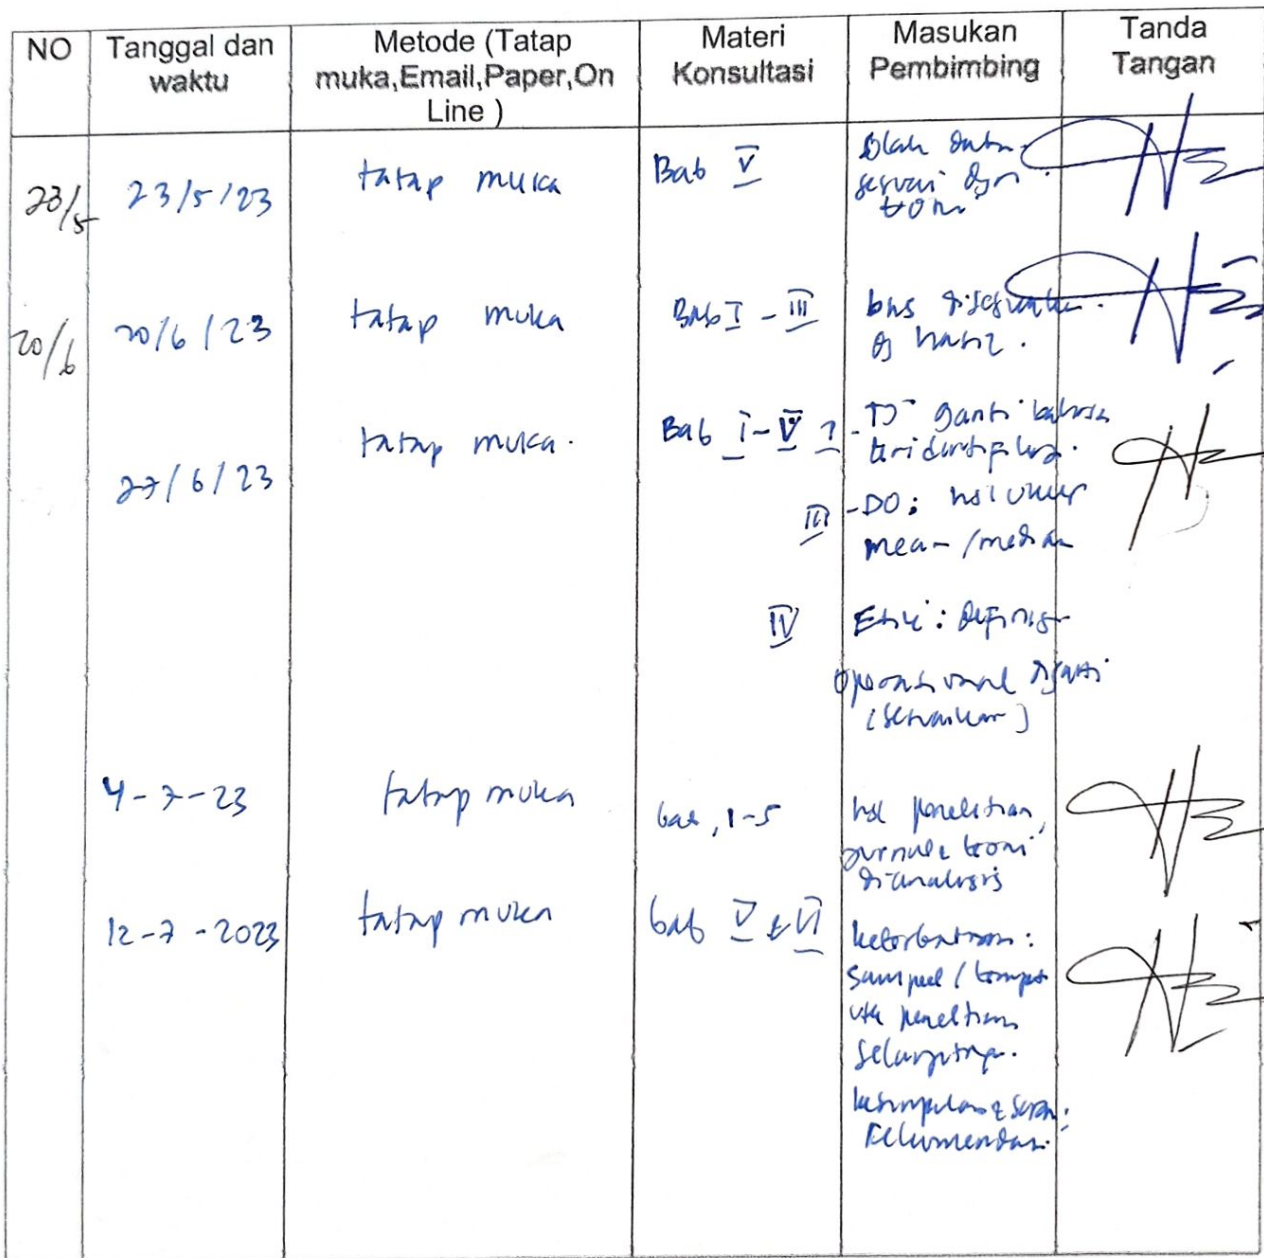 NO
Tanggal dan
waktu
Metode (Tatap
muka,Email,Paper,On
Line )
Materi
Konsultasi
Masukan
Pembimbing
Tanda
Tangan
23/5
23/5/23
tatap muka
Bab V
Olah data
sesuai dgn
20/6
20/6/23
tatap muka
Bab I - III
bhs
27/6/23
tatap muka.
Bab I-V
I
- TJ ganti bahasa
III
- DO: hsl ukur
mean/median
IV
Etik: Definisi
operasional diganti
(sesuaikan)
4-7-23
tatap muka
bab, 1-5
hsl penelitian,
jurnal & teori
dianalisis
12-7-2023
tatap muka
bab V & VI
keterbatasan:
sampel / tempat
utk penelitian
selanjutnya.
kesimpulan & saran:
Rekomendasi.